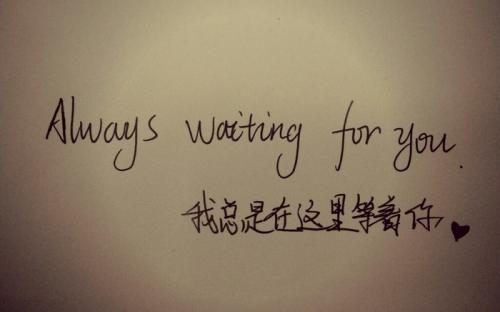 Always waiting for you.
我总是在这里等着你